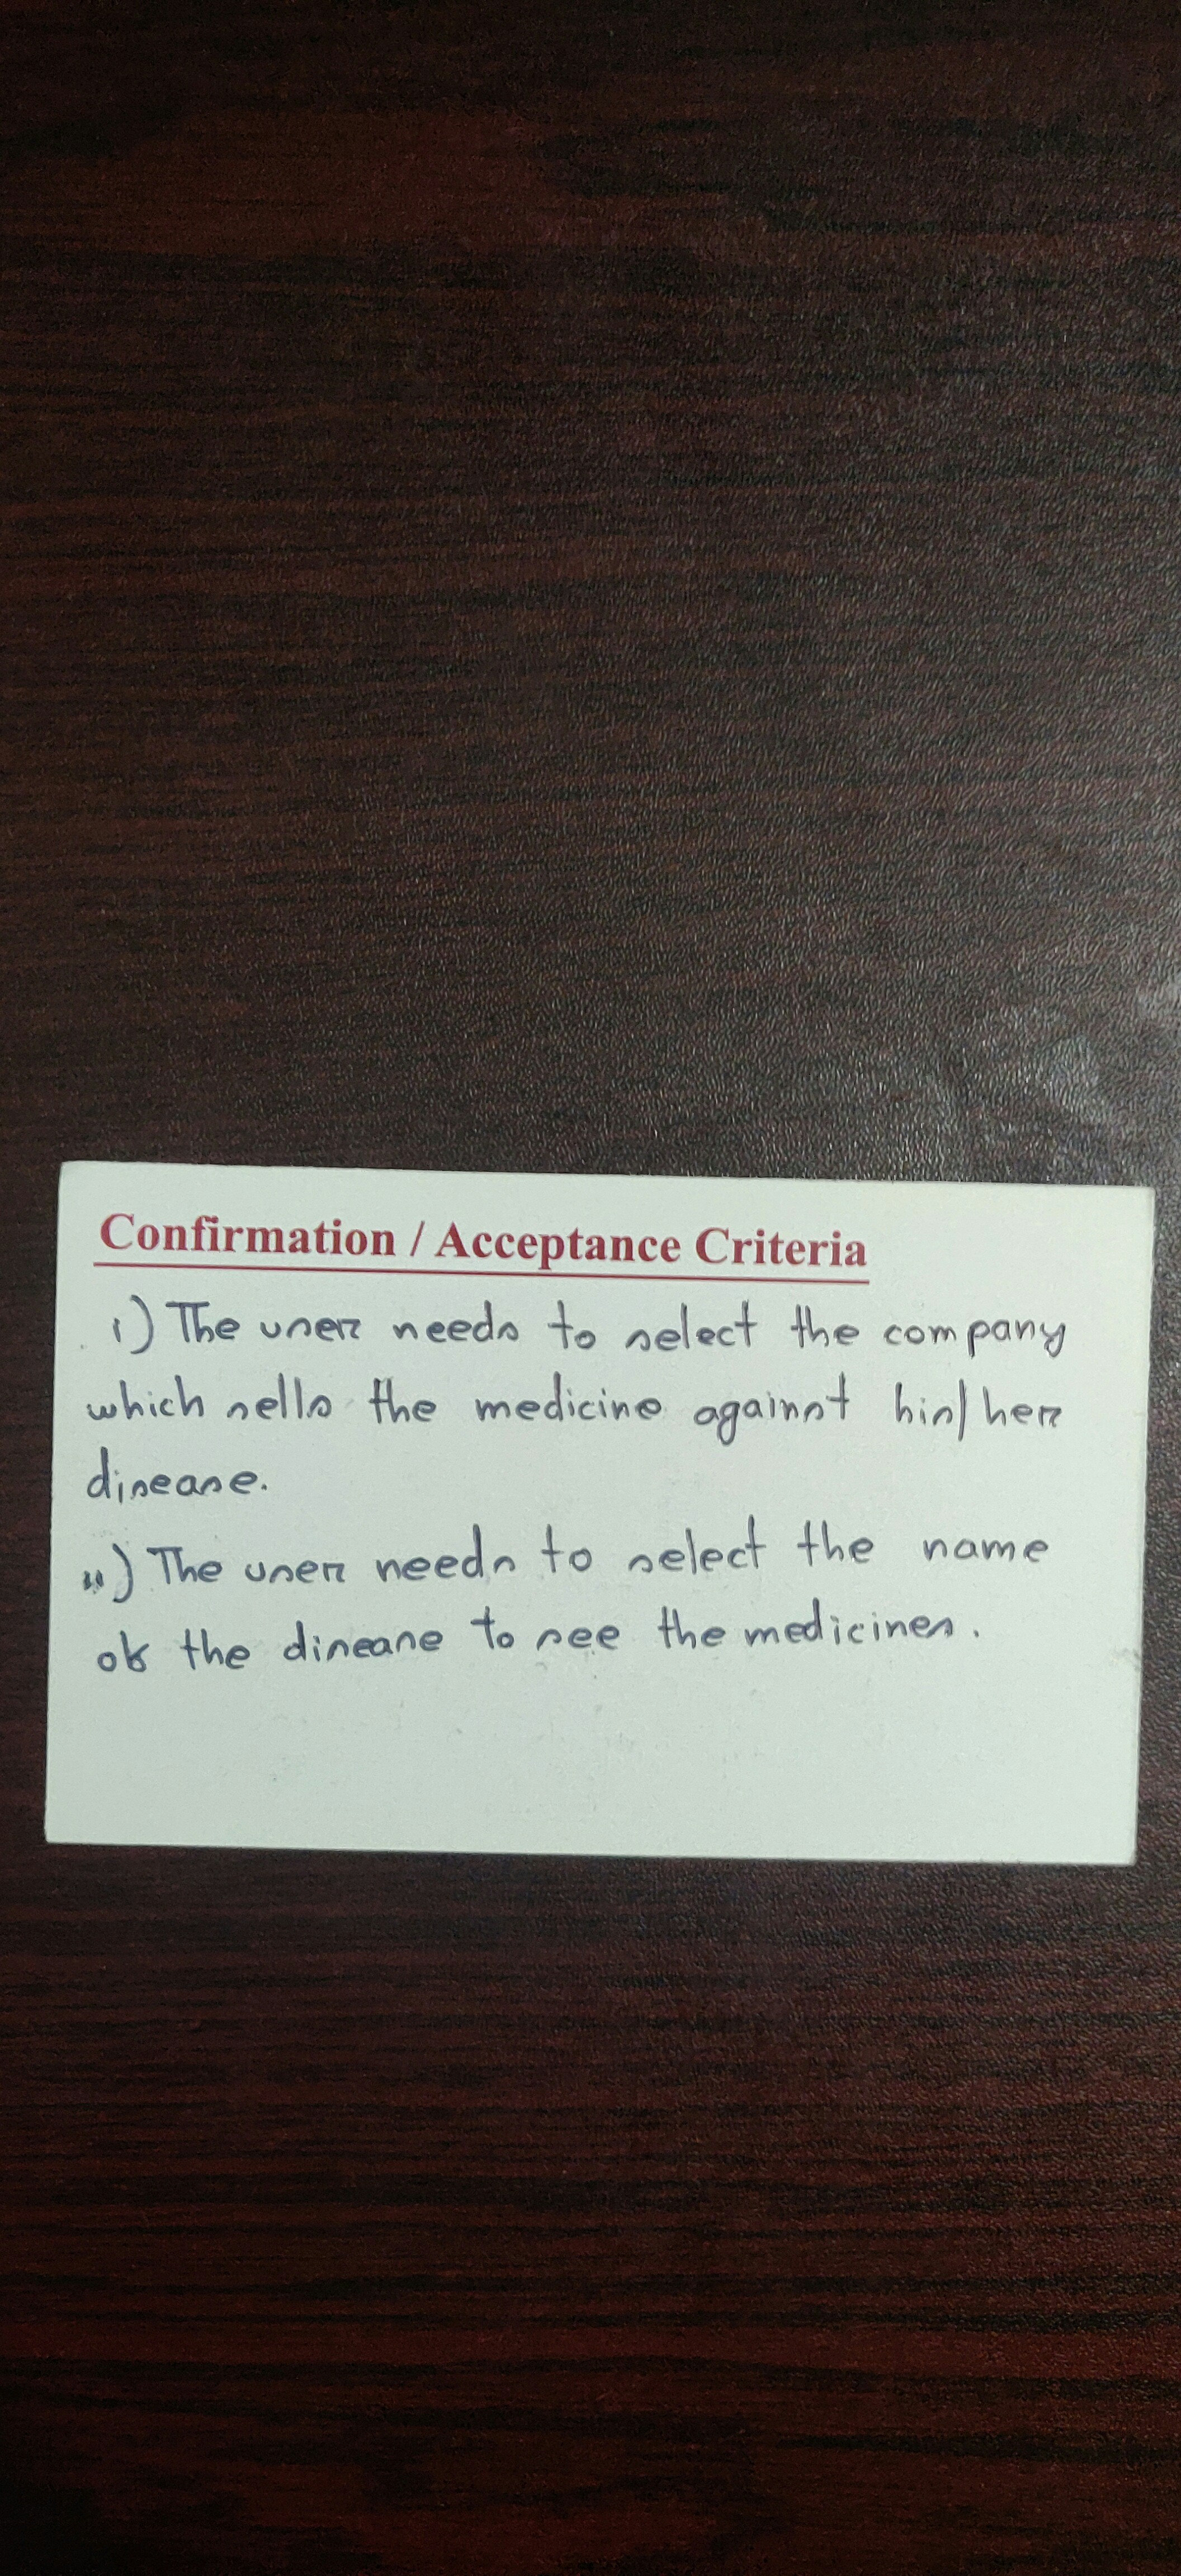 Confirmation / Acceptance Criteria
i) The user needs to select the company
which sells the medicine against his/her
disease.
ii) The user needs to select the name
of the disease to see the medicines.